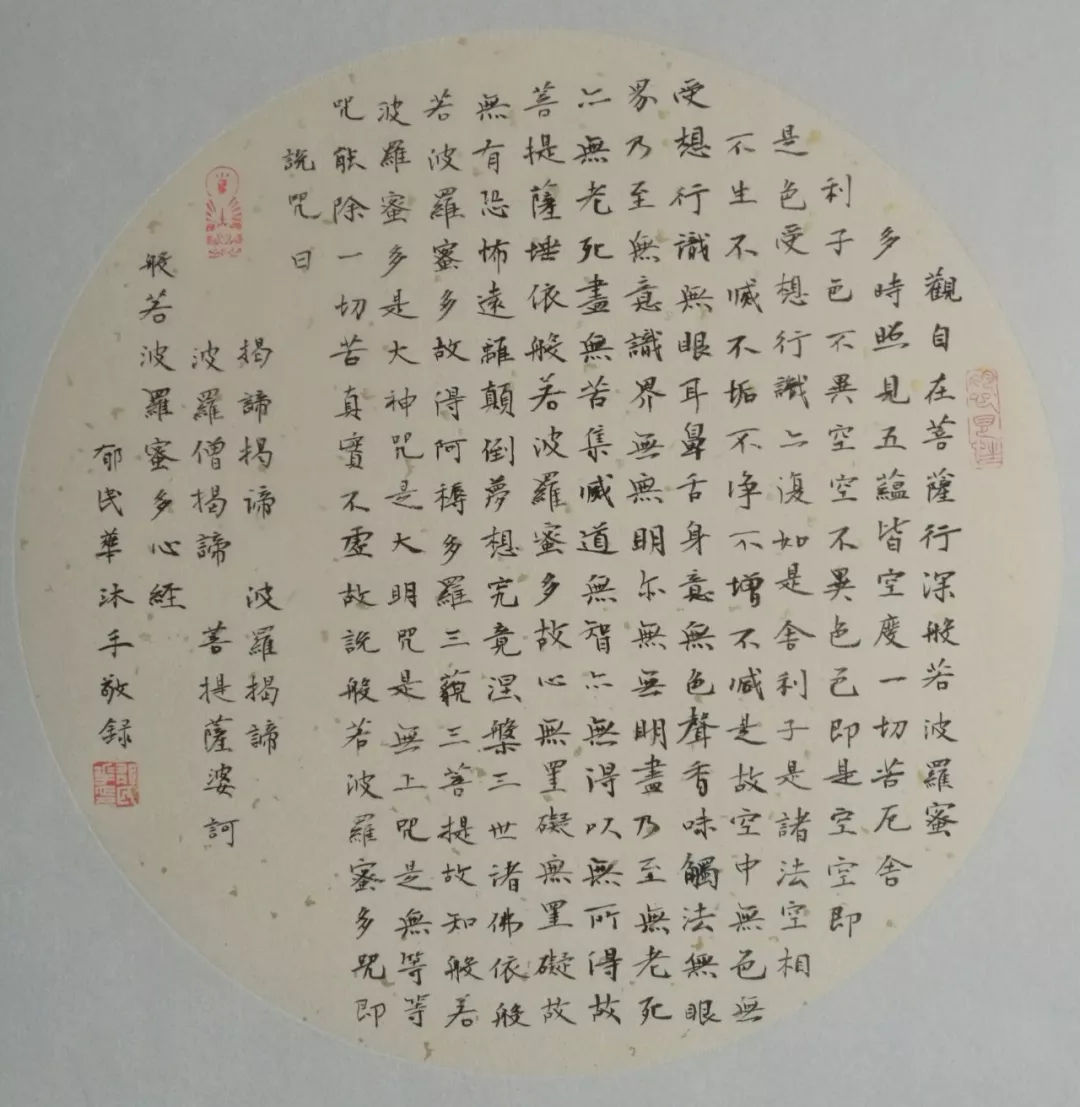 觀自在菩薩行深般若波羅蜜
多時照見五蘊皆空度一切苦厄舍
利子色不異空空不異色色即是空空即
是色受想行識亦復如是舍利子是諸法空相
不生不滅不垢不净不增不減是故空中無色無
受想行識無眼耳鼻舌身意無色聲香味觸法無眼
界乃至無意識界無無明亦無無明盡乃至無老死
亦無老死盡無苦集滅道無智亦無得以無所得故
菩提薩埵依般若波羅蜜多故心無罣礙無罣礙故
無有恐怖遠離顛倒夢想究竟涅槃三世諸佛依般
若波羅蜜多故得阿耨多羅三藐三菩提故知般若
波羅蜜多是大神咒是大明咒是無上咒是無等等
咒能除一切苦真實不虛故說般若波羅蜜多咒即
說咒曰
揭諦揭諦 波羅揭諦
波羅僧揭諦 菩提薩婆訶
般若波羅蜜多心經
郁民華沐手敬録